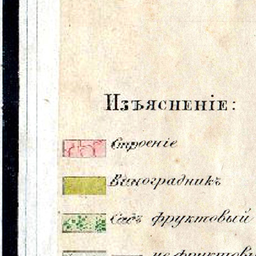 Изъясненіе:
Строеніе
Виноградникъ
Садъ фруктовый
не фруктовы